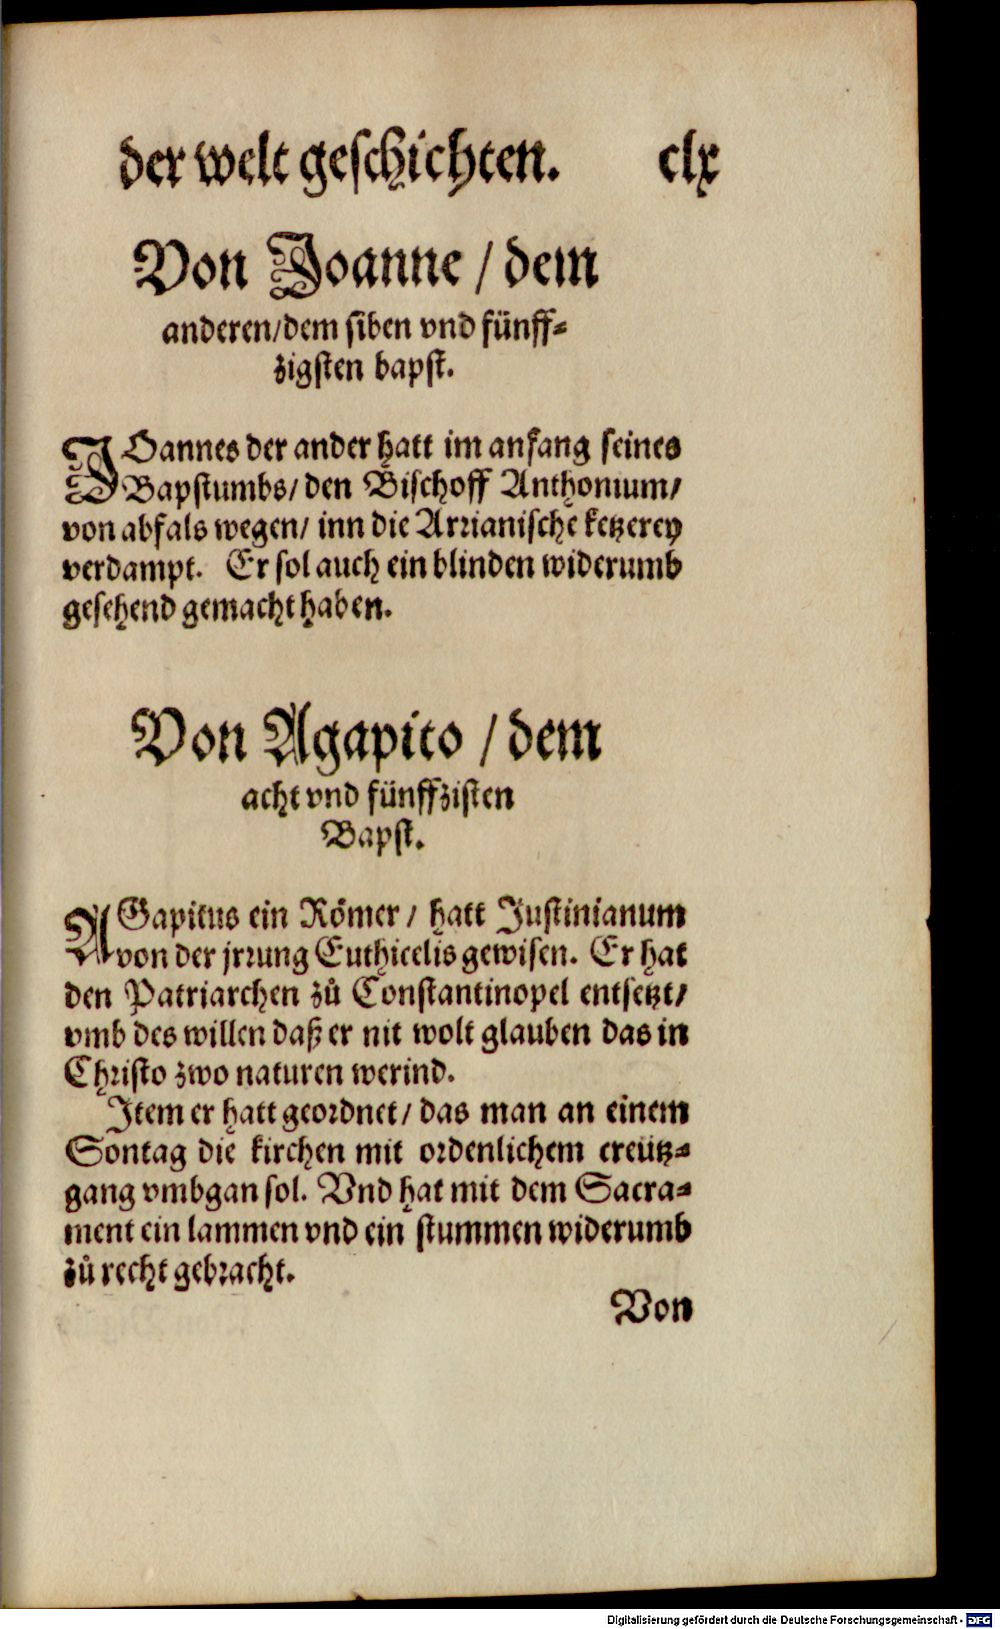 der welt geschichten. clx
Von Joanne / dem
anderen/dem siben vnd fünff⸗
zigsten bapst.
JOannes der ander hatt im anfang seines
Bapstumbs/ den Bischoff Anthonium/
von abfals wegen/ inn die Arrianische ketzerey
verdampt. Er sol auch ein blinden widerumb
gesehend gemacht haben.
Von Agapito / dem
acht vnd fünffzisten
Bapst.
AGapitus ein Römer / hatt Justinianum
von der jrrung Euthicetis gewisen. Er hat
den Patriarchen zů Constantinopel entsetzt/
vmb des willen daß er nit wolt glauben das in
Christo zwo naturen werind.
Item er hatt geordnet/ das man an einem
Sontag die kirchen mit ordenlichem creütz⸗
gang vmbgan sol. Vnd hat mit dem Sacra⸗
ment ein lammen vnd ein stummen widerumb
zů recht gebracht.
Von
Digitalisierung gefördert durch die Deutsche Forschungsgemeinschaft - DFG